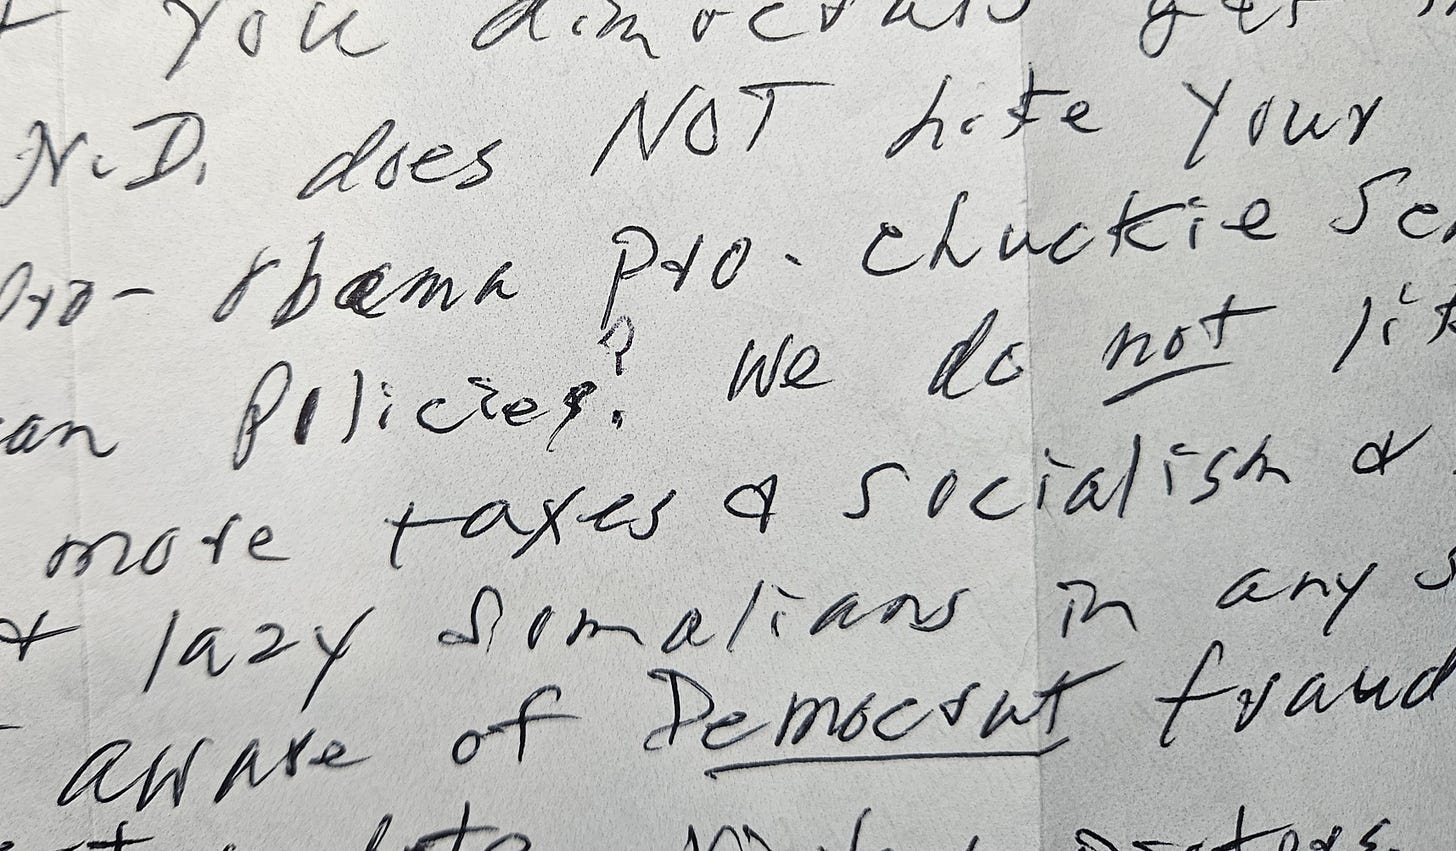 you dimocrats get
N.D. does NOT like your
pro-Obama pro-chuckie Se
an policies? We do not li
more taxes & socialism &
& lazy Somalians in any s
aware of Democrat fraud